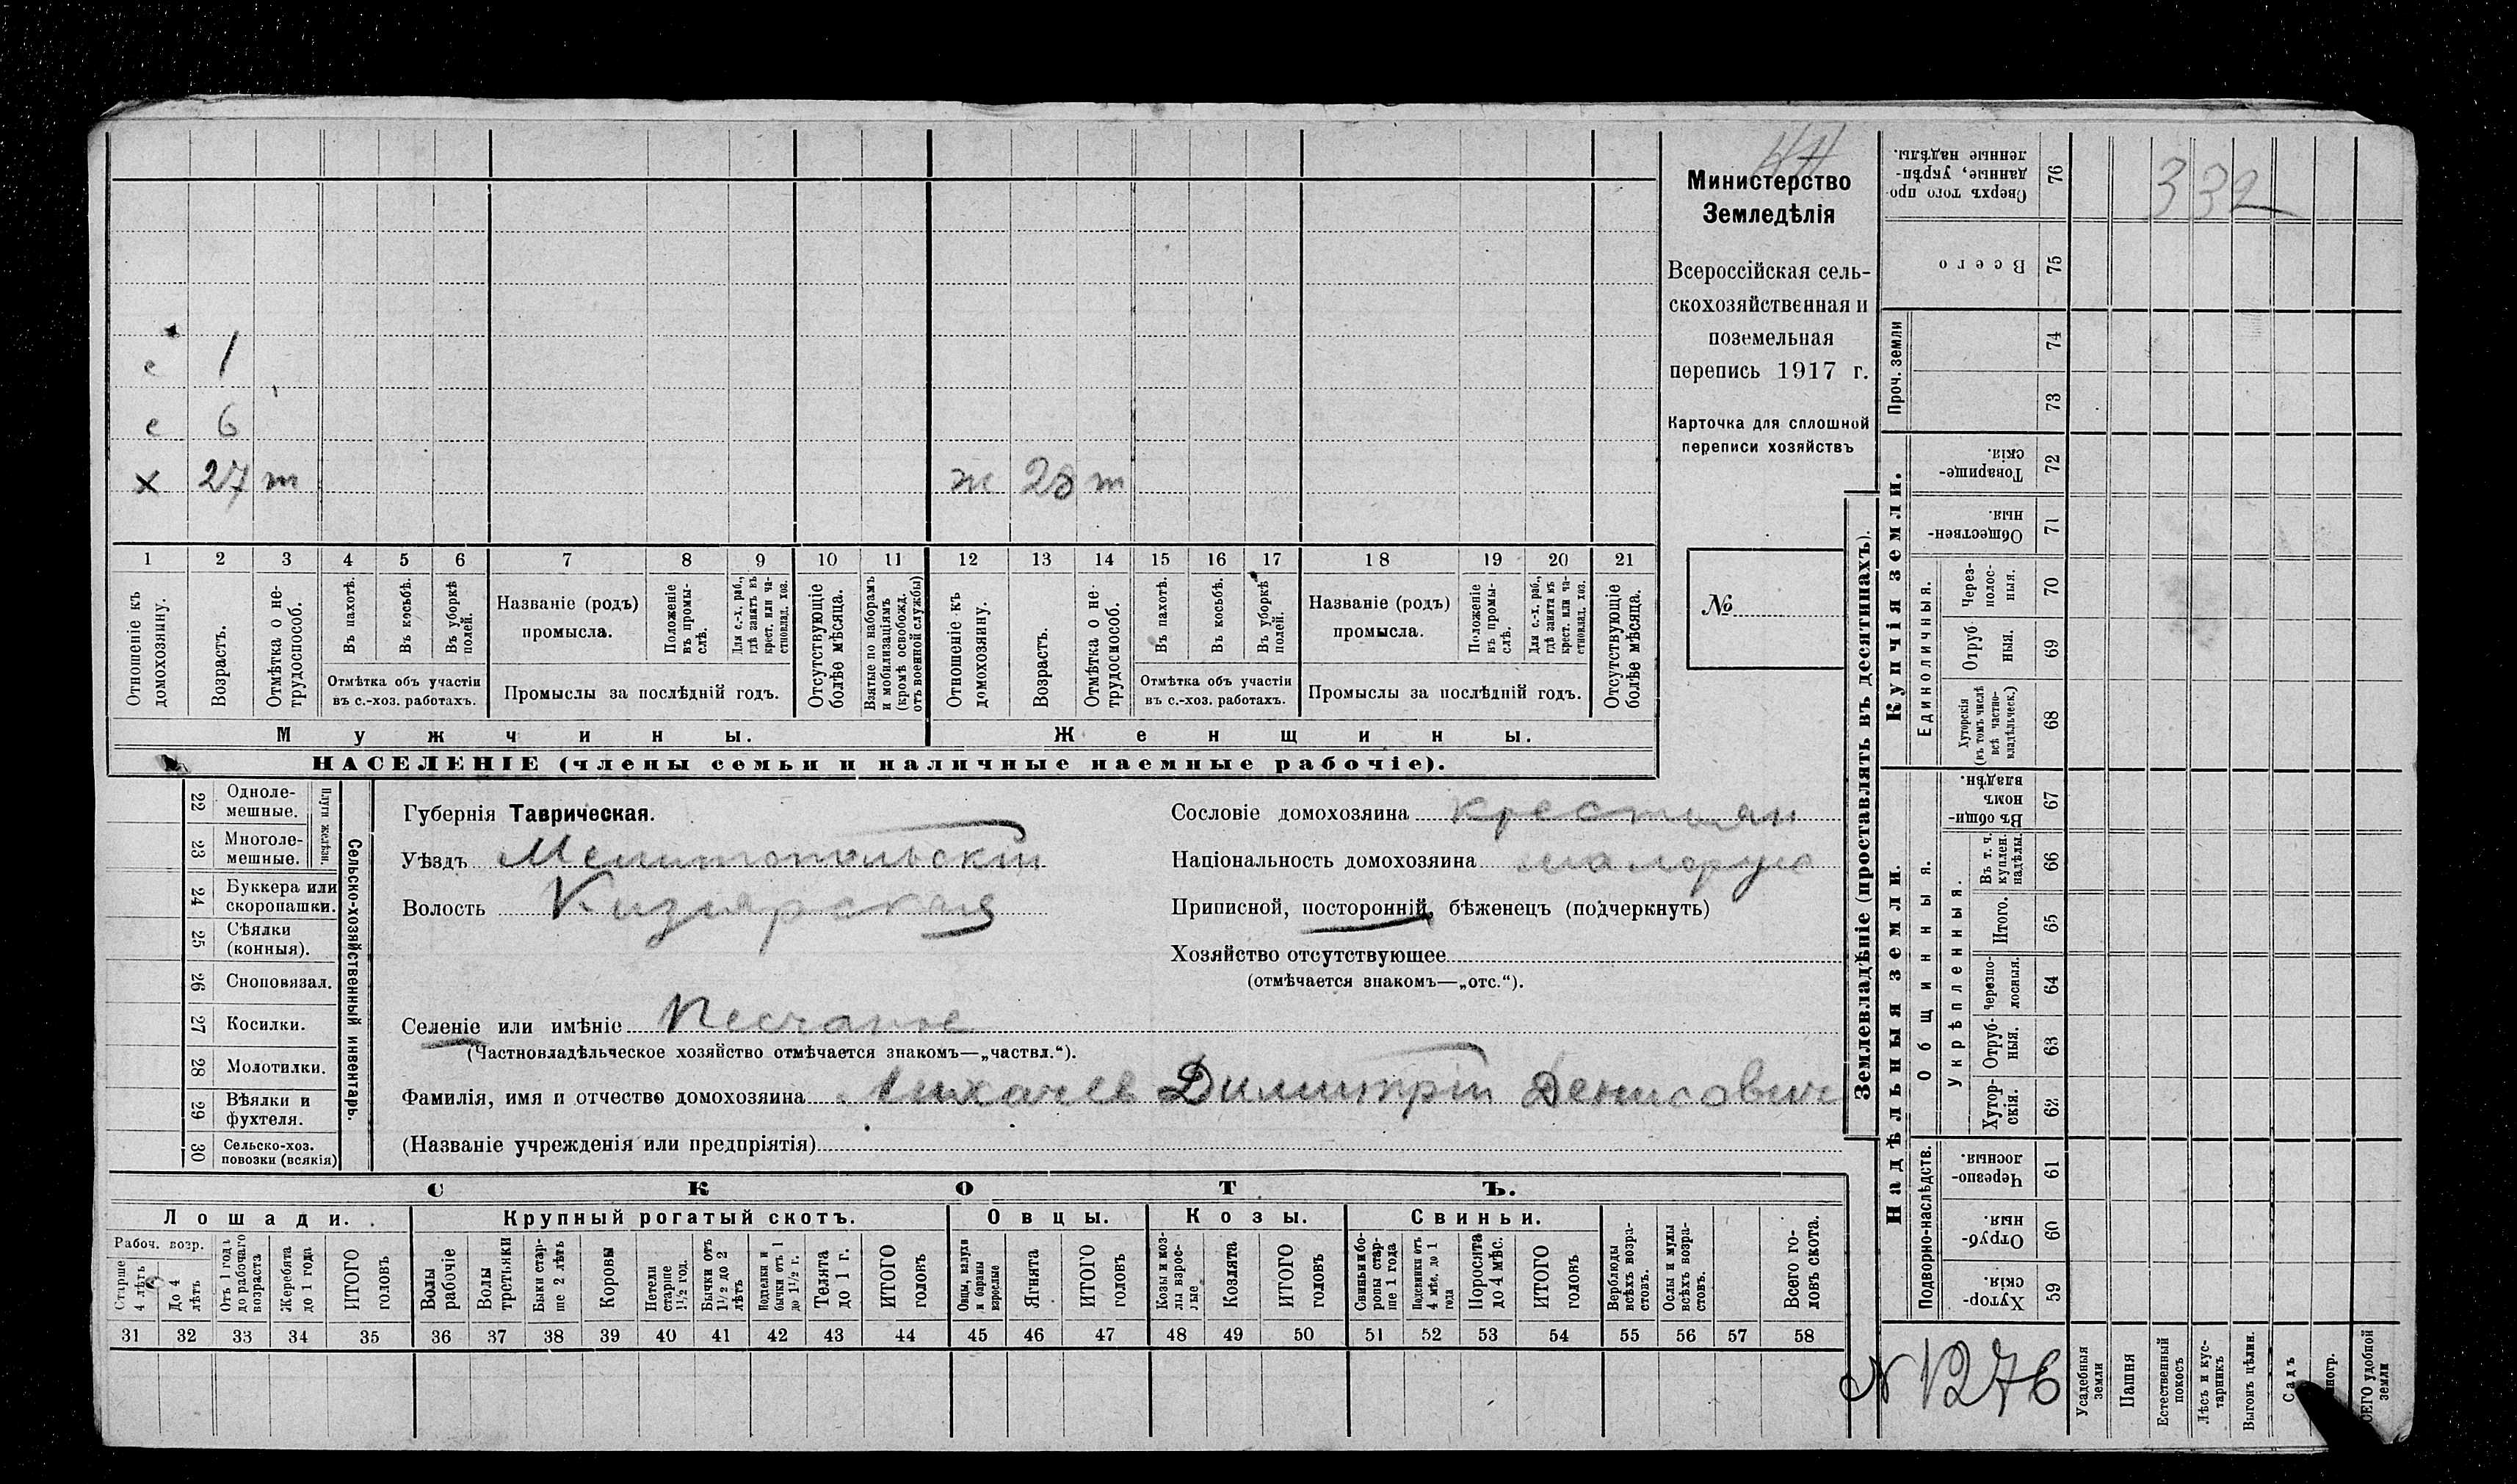 е 1
е 6
х 27 т ж 28 т
1 2 3 4 5 6 7 8 9 10 11 12 13 14 15 16 17 18 19 20 21
Отношеніе къ домохозяину.
Возрастъ.
Отмѣтка о не-трудоспособ.
Въ пахотѣ.
Въ косьбѣ.
Въ уборкѣ полей.
Отмѣтка объ участіи
въ с.-хоз. работахъ.
Названіе (родъ)
промысла.
Положеніе въ промы-слѣ.
Для с.-х. раб., гдѣ занятъ въ крест. или ча-стновлад. хоз.
Промыслы за послѣдній годъ.
Отсутствующіе болѣе мѣсяца.
Взятые по наборамъ и мобилизаціямъ (кромѣ освобожд. отъ военной службы)
Отношеніе къ домохозяину.
Возрастъ.
Отмѣтка о не-трудоспособ.
Въ пахотѣ.
Въ косьбѣ.
Въ уборкѣ полей.
Отмѣтка объ участіи
въ с.-хоз. работахъ.
Названіе (родъ)
промысла.
Положеніе въ промы-слѣ.
Для с.-х. раб., гдѣ занята въ крест. или ча-стновлад. хоз.
Промыслы за послѣдній годъ.
Отсутствующіе болѣе мѣсяца.
Мужчины. Женщины.
НАСЕЛЕНІЕ (члены семьи и наличные наемные рабочіе).
Министерство
Земледѣлія
Всероссійская сель-
скохозяйственная и
поземельная
перепись 1917 г.
Карточка для сплошной
переписи хозяйствъ
№
Сельско-хозяйственный инвентарь.
Плуги желѣзн.
22 Одноле-
мешные.
23 Многоле-
мешные.
24 Буккера или
скоропашки.
25 Сѣялки
(конныя).
26 Сноповязал.
27 Косилки.
28 Молотилки.
29 Вѣялки и
фухтеля.
30 Сельско-хоз.
повозки (всякія)
Губернія Таврическая.
Уѣздъ Мелитопольскій
Волость Кизиярская
Селеніе или имѣніе Песчаное
(Частновладѣльческое хозяйство отмѣчается знакомъ—„частвл.“).
Фамилія, имя и отчество домохозяина Лихачев Димитрій Денисович
(Названіе учрежденія или предпріятія)
Сословіе домохозяина крестьян
Національность домохозяина малорус
Приписной, посторонній, бѣженецъ (подчеркнуть)
Хозяйство отсутствующее
(отмѣчается знакомъ—„отс.“).
СКОТЪ.
Лошади. Крупный рогатый скотъ. Овцы. Козы. Свиньи.
Рабоч. возр.
Старше 4 лѣтъ
До 4 лѣтъ
Отъ 1 года до рабочаго возраста
Жеребята до 1 года
ИТОГО головъ
Волы рабочіе
Волы третьяки
Быки стар-ше 2 лѣтъ
Коровы
Нетели старше 1½ год.
Бычки отъ 1½ до 2 лѣтъ
Подтелки и бычки отъ 1 до 1½ г.
Телята до 1 г.
ИТОГО головъ
Овцы, валухи и бараны взрослые
Ягнята
ИТОГО головъ
Козы и коз-лы взрос-лые
Козлята
ИТОГО головъ
Свиньи и бо-ровы стар-ше 1 года
Подсвинки отъ 4 мѣс. до 1 года
Поросята до 4 мѣс.
ИТОГО головъ
Верблюды всѣхъ возра-стовъ.
Ослы и мулы всѣхъ возра-стовъ.
Всего го-ловъ скота.
31 32 33 34 35 36 37 38 39 40 41 42 43 44 45 46 47 48 49 50 51 52 53 54 55 56 57 58
Землевладѣніе (проставлять въ десятинахъ).
Проч. земли
Купчія земли.
Единоличныя.
Надѣльныя земли.
Общинныя.
Укрѣпленныя.
Подворно-наслѣдств.
Сверхъ того про-данные, укрѣп-ленные надѣлы. 76
332
Всего 75
74
73
Товарище-скія. 72
Обществен-ныя. 71
Через-полос-ныя. 70
Отруб-ныя. 69
Хуторскія (въ томъ числѣ всѣ частно-владѣльческ.) 68
Въ общин-номъ владѣн. 67
Въ т. ч. куплен. надѣлы 66
Итого. 65
Черезпо-лосныя. 64
Отруб-ныя. 63
Хутор-скія. 62
Черезпо-лосныя. 61
Отруб-ныя. 60
Хутор-скія. 59
N 1276
Усадебныя земли
Пашня
Естественный покосъ
Лѣсъ и кус-тарникъ
Выгонъ цѣлин.
Садъ